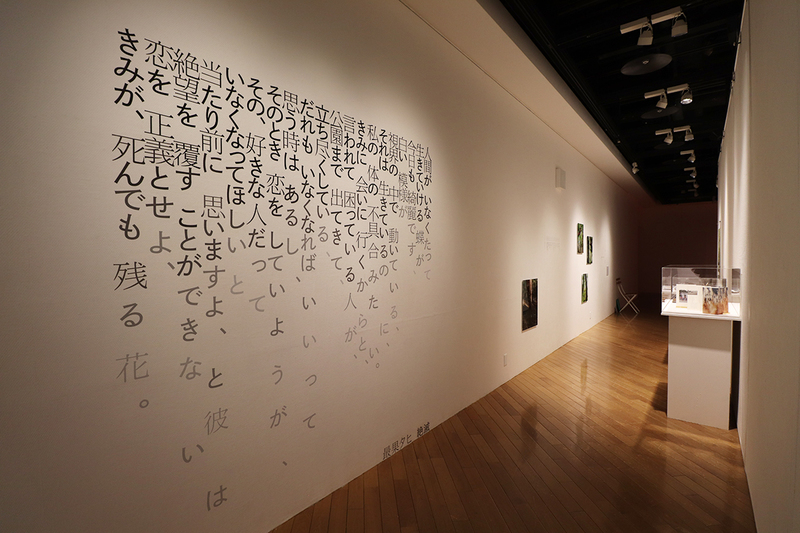 人間がいなくたって
生きていける蝶が
今日も綺麗です、
白い模様が
視界の中で動いている、
それは生きているのに、
私の体の不具合みたい。
きみに会いに行くからと、
言われて困っている人が、
公園まで出てきて、
立ち尽くしている、
だれもいなくなれば、いいって
思う時はあるし、
そのとき恋をしていようが、
その、好きな人だって
いなくなってほしいと
当たり前に思いますよ、と彼は
絶望を覆すことができない
恋を正義とせよ、
きみが、死んでも残る花。
最果タヒ 絶滅